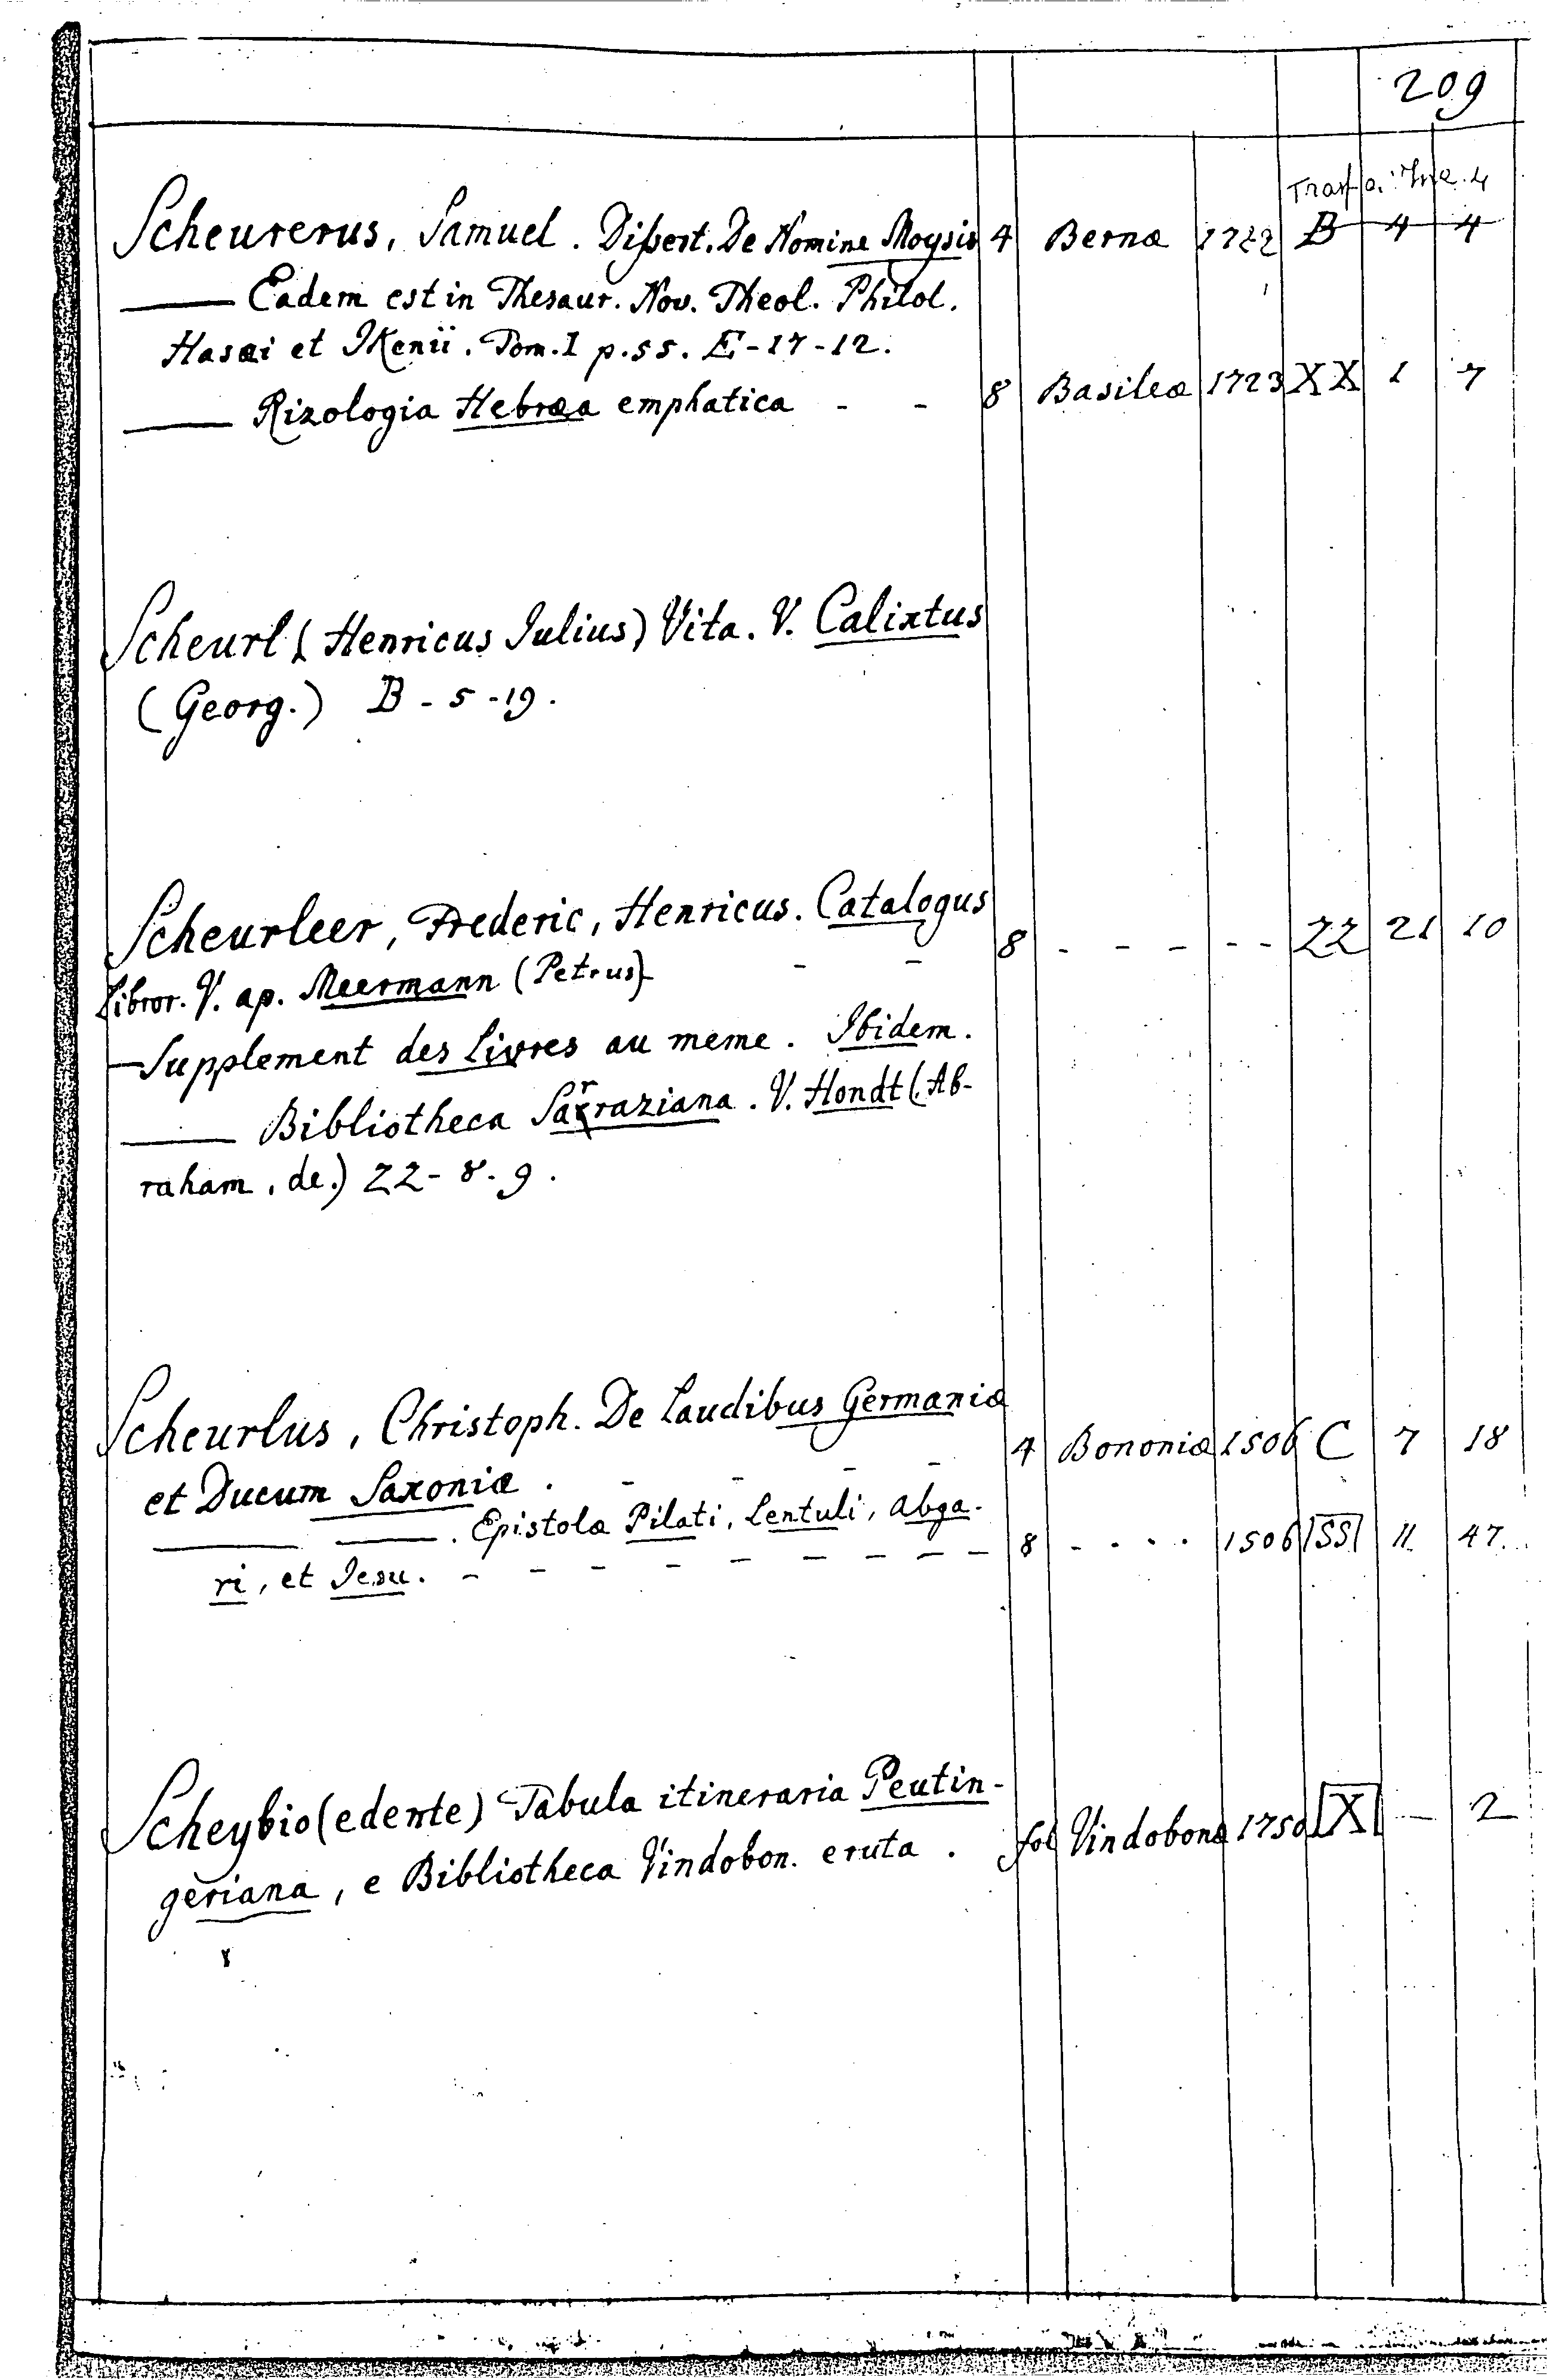 209
Scheurerus, Samuel. Dissert. De Nomine Moysis 4 Bernæ 1722 B 4 4
—— Eadem est in Thesaur. Nov. Theol. Philol.
Hasæi et IKenii. Tom. I p. 55. E-17-12.
—— Rizologia Hebræa emphatica - - 8 Basileæ 1723 XX 1 7
Scheurl (Henricus Julius) Vita. V. Calixtus
(Georg.) B-5-19.
Scheurleer, Frederic, Henricus. Catalogus
Libror. V. ap. Meermann (Petrus) - - 8 - - - - - ZZ 21 10
— Supplement des Livres au meme. Ibidem.
—— Bibliotheca Sarraziana. V. Hondt (Ab-
raham, de.) ZZ-8-9.
Scheurlus, Christoph. De Laudibus Germaniæ
et Ducum Saxoniæ. - - - - 4 Bononiæ 1506 C 7 18
—— ——. Epistolæ Pilati, Lentuli, Abga-
ri, et Jesu. - - - - - - - - - 8 - - - - 1506 SS 11 47.
Scheybio (edente) Tabula itineraria Peutin-
geriana, e Bibliotheca Vindobon. eruta. fol Vindobonæ 1750 X — 2